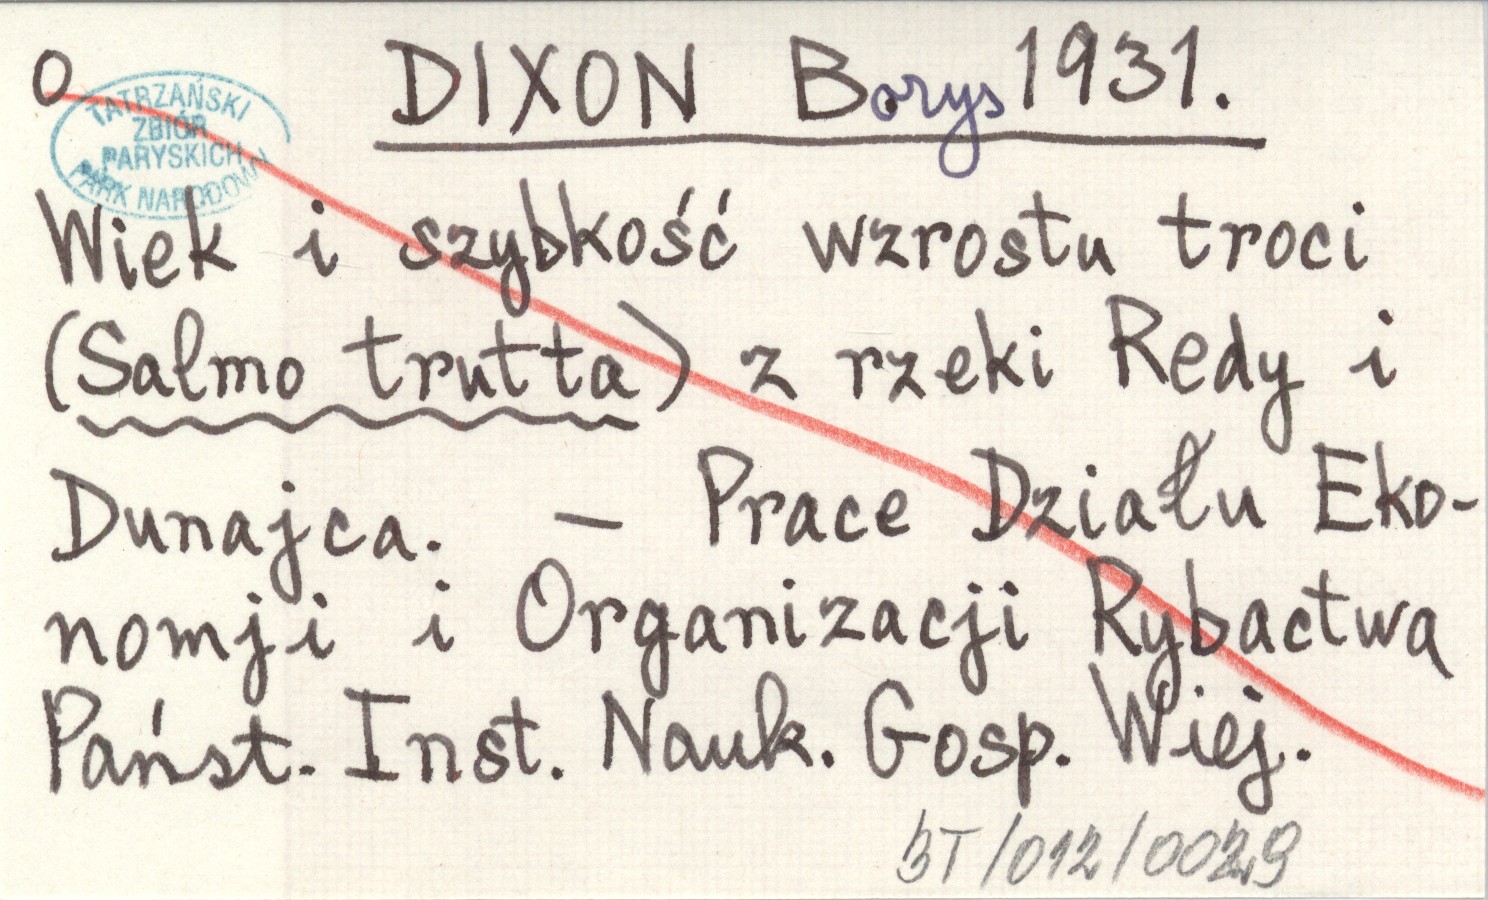 O DIXON Borys 1931.
TATRZAŃSKI
ZBIÓR
PARYSKICH
PARK NARODOWY
Wiek i szybkość wzrostu troci
(Salmo trutta) z rzeki Redy i
Dunajca. – Prace Działu Eko-
nomji i Organizacji Rybactwa
Państ. Inst. Nauk. Gosp. Wiej.
BT/012/0029